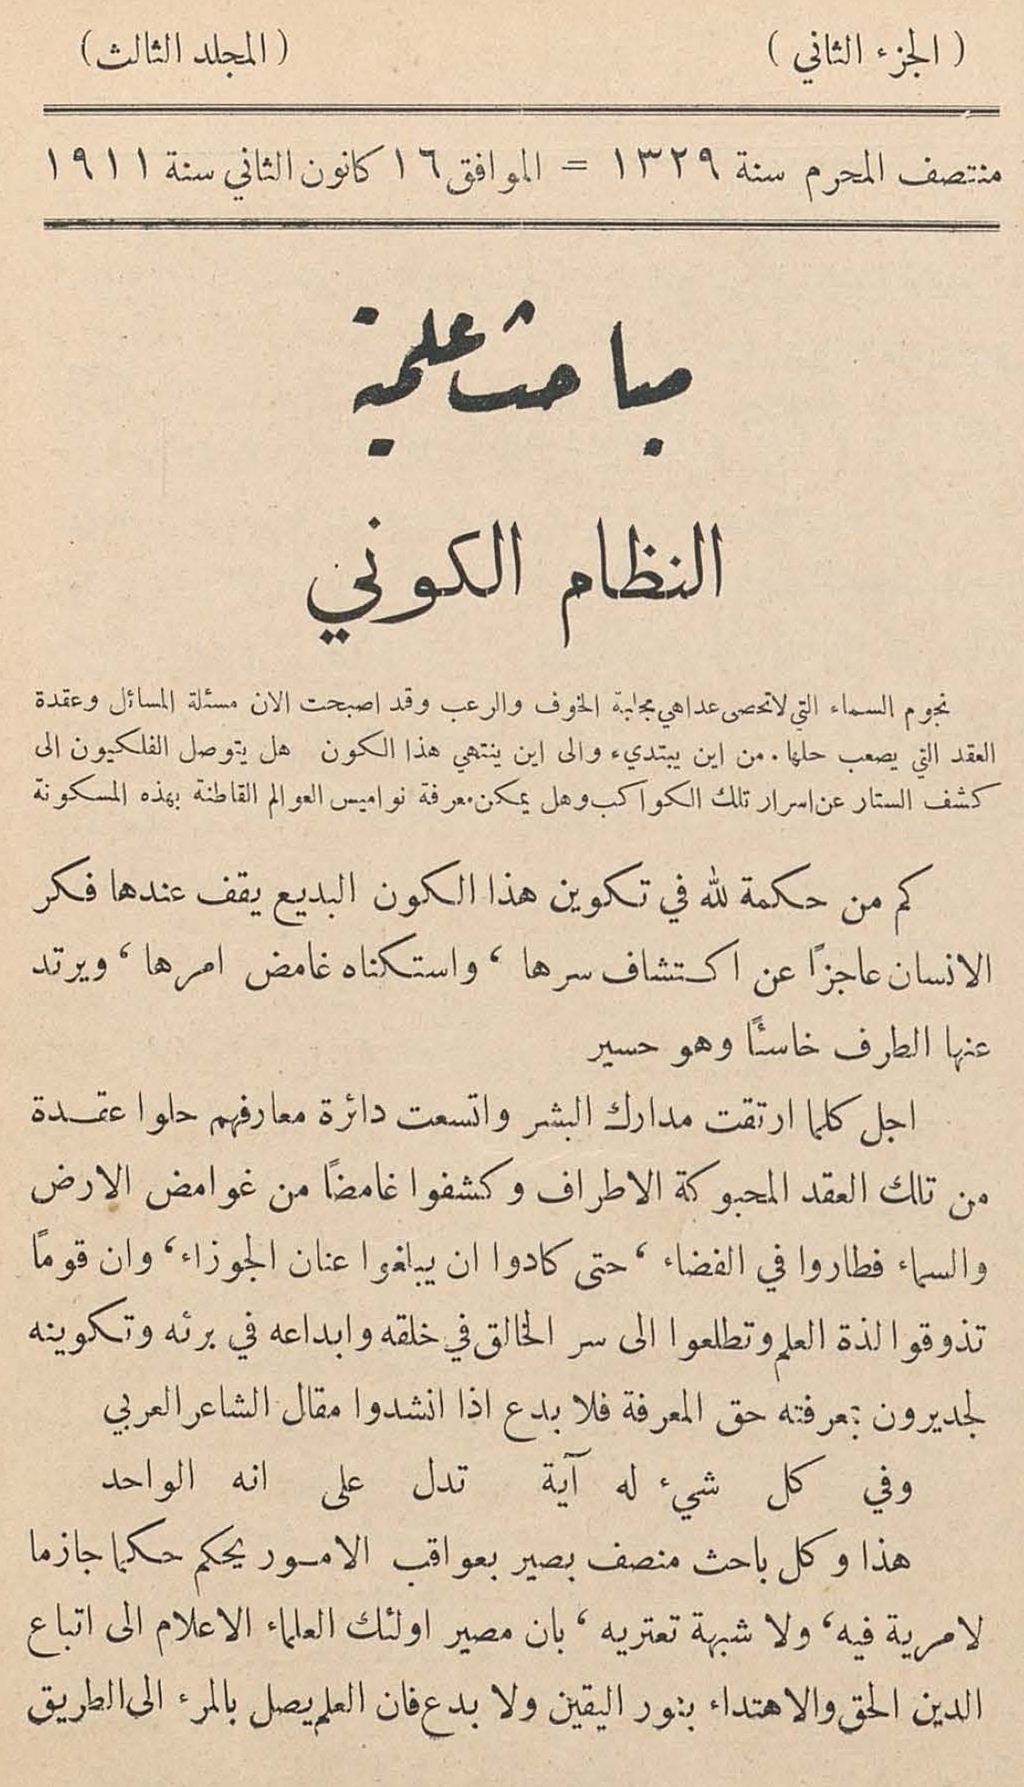 ( الجزء الثاني ) ( المجلد الثالث )
منتصف المحرم سنة ١٣٢٩ = الموافق ١٦ كانون الثاني سنة ١٩١١
مباحث علمية
النظام الكوني
نجوم السماء التي لا تحصى عدا هي مجلبة الخوف والرعب وقد اصبحت الان مسئلة المسائل وعقدة
العقد التي يصعب حلها . من اين يبتديء والى اين ينتهي هذا الكون هل يتوصل الفلكيون الى
كشف الستار عن اسرار تلك الكواكب وهل يمكن معرفة نواميس العوالم القاطنة بهذه المسكونة
كم من حكمة لله في تكوين هذا الكون البديع يقف عندها فكر
الانسان عاجزاً عن اكتشاف سرها ‘ واستكناه غامض امرها ‘ ويرتد
عنها الطرف خاسئاً وهو حسير
اجل كلما ارتقت مدارك البشر واتسعت دائرة معارفهم حلوا عقدة
من تلك العقد المحبوكة الاطراف وكشفوا غامضاً من غوامض الارض
والسماء فطاروا في الفضاء ‘ حتى كادوا ان يبلغوا عنان الجوزاء ‘ وان قوماً
تذوقوا لذة العلم وتطلعوا الى سر الخالق في خلقه وابداعه في برئه وتكوينه
لجديرون بمعرفته حق المعرفة فلا بدع اذا انشدوا مقال الشاعر العربي
وفي كل شيء له آية تدل على انه الواحد
هذا وكل باحث منصف بصير بعواقب الامور يحكم حكما جازما
لا مرية فيه ‘ ولا شبهة تعتريه ‘ بان مصير اولئك العلماء الاعلام الى اتباع
الدين الحق والاهتداء بنور اليقين ولا بدع فان العلم يصل بالمرء الى الطريق